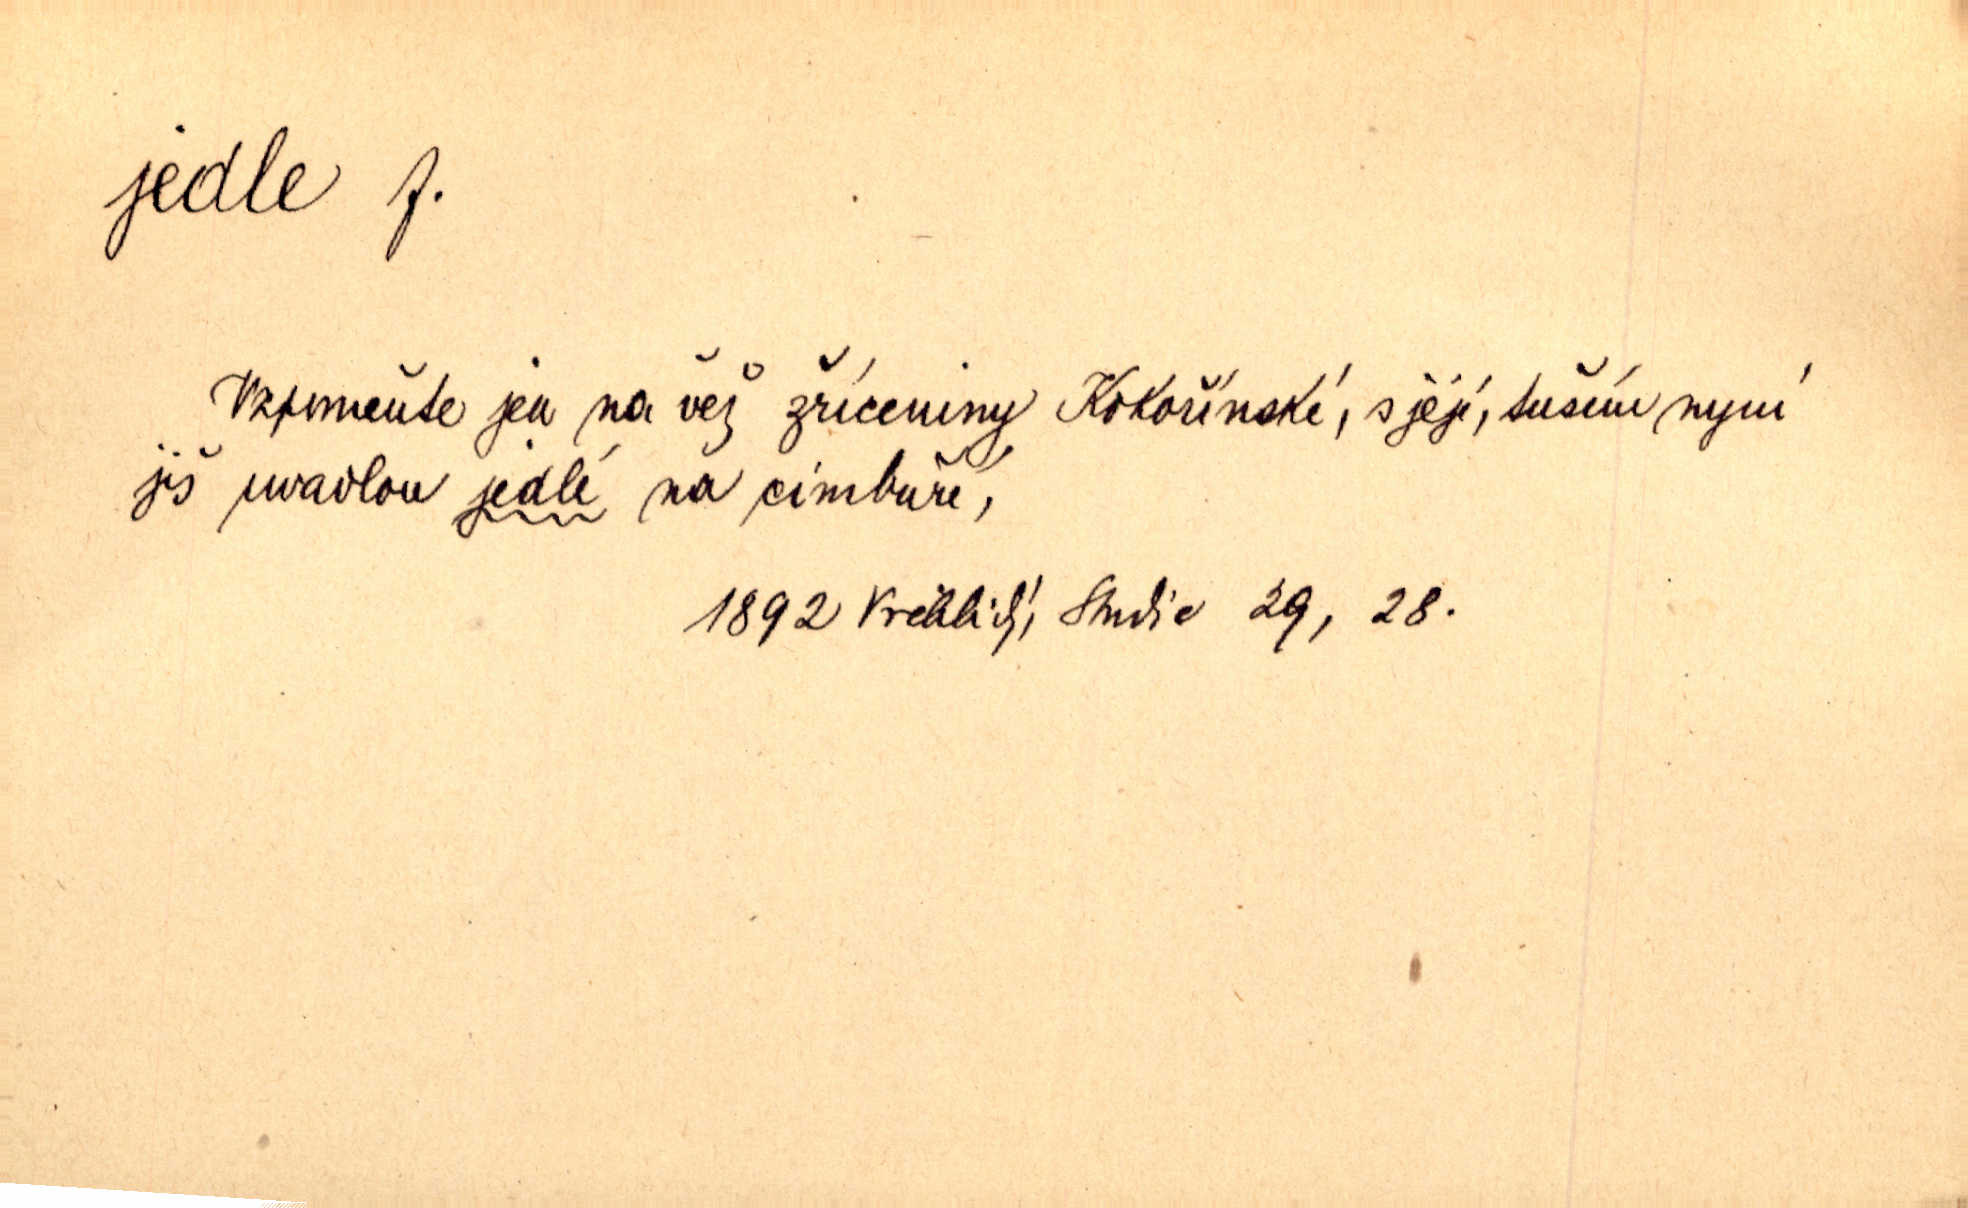 jedle f.
Vzpomeňte jen na věž zříceniny Kokořínské, s její, tuším nyní
již uvadlou jedlí na cimbuří,
1892 Vrchlický, Studie 29, 28.